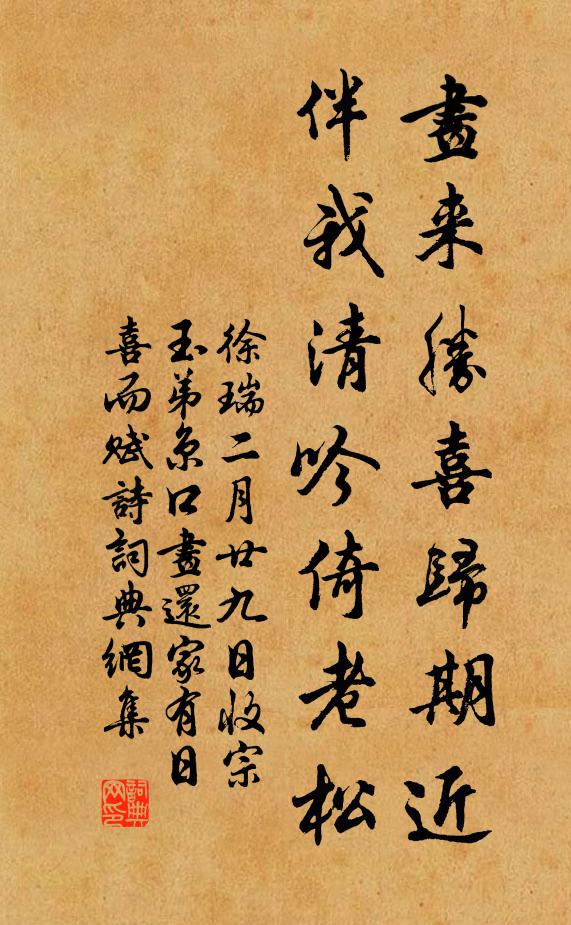 畫来勝喜歸期近
伴我清吟倚老松
徐瑞二月廿九日收宗
玉弟京口畫還家有日
喜而賦詩詞典網集
詞典网印